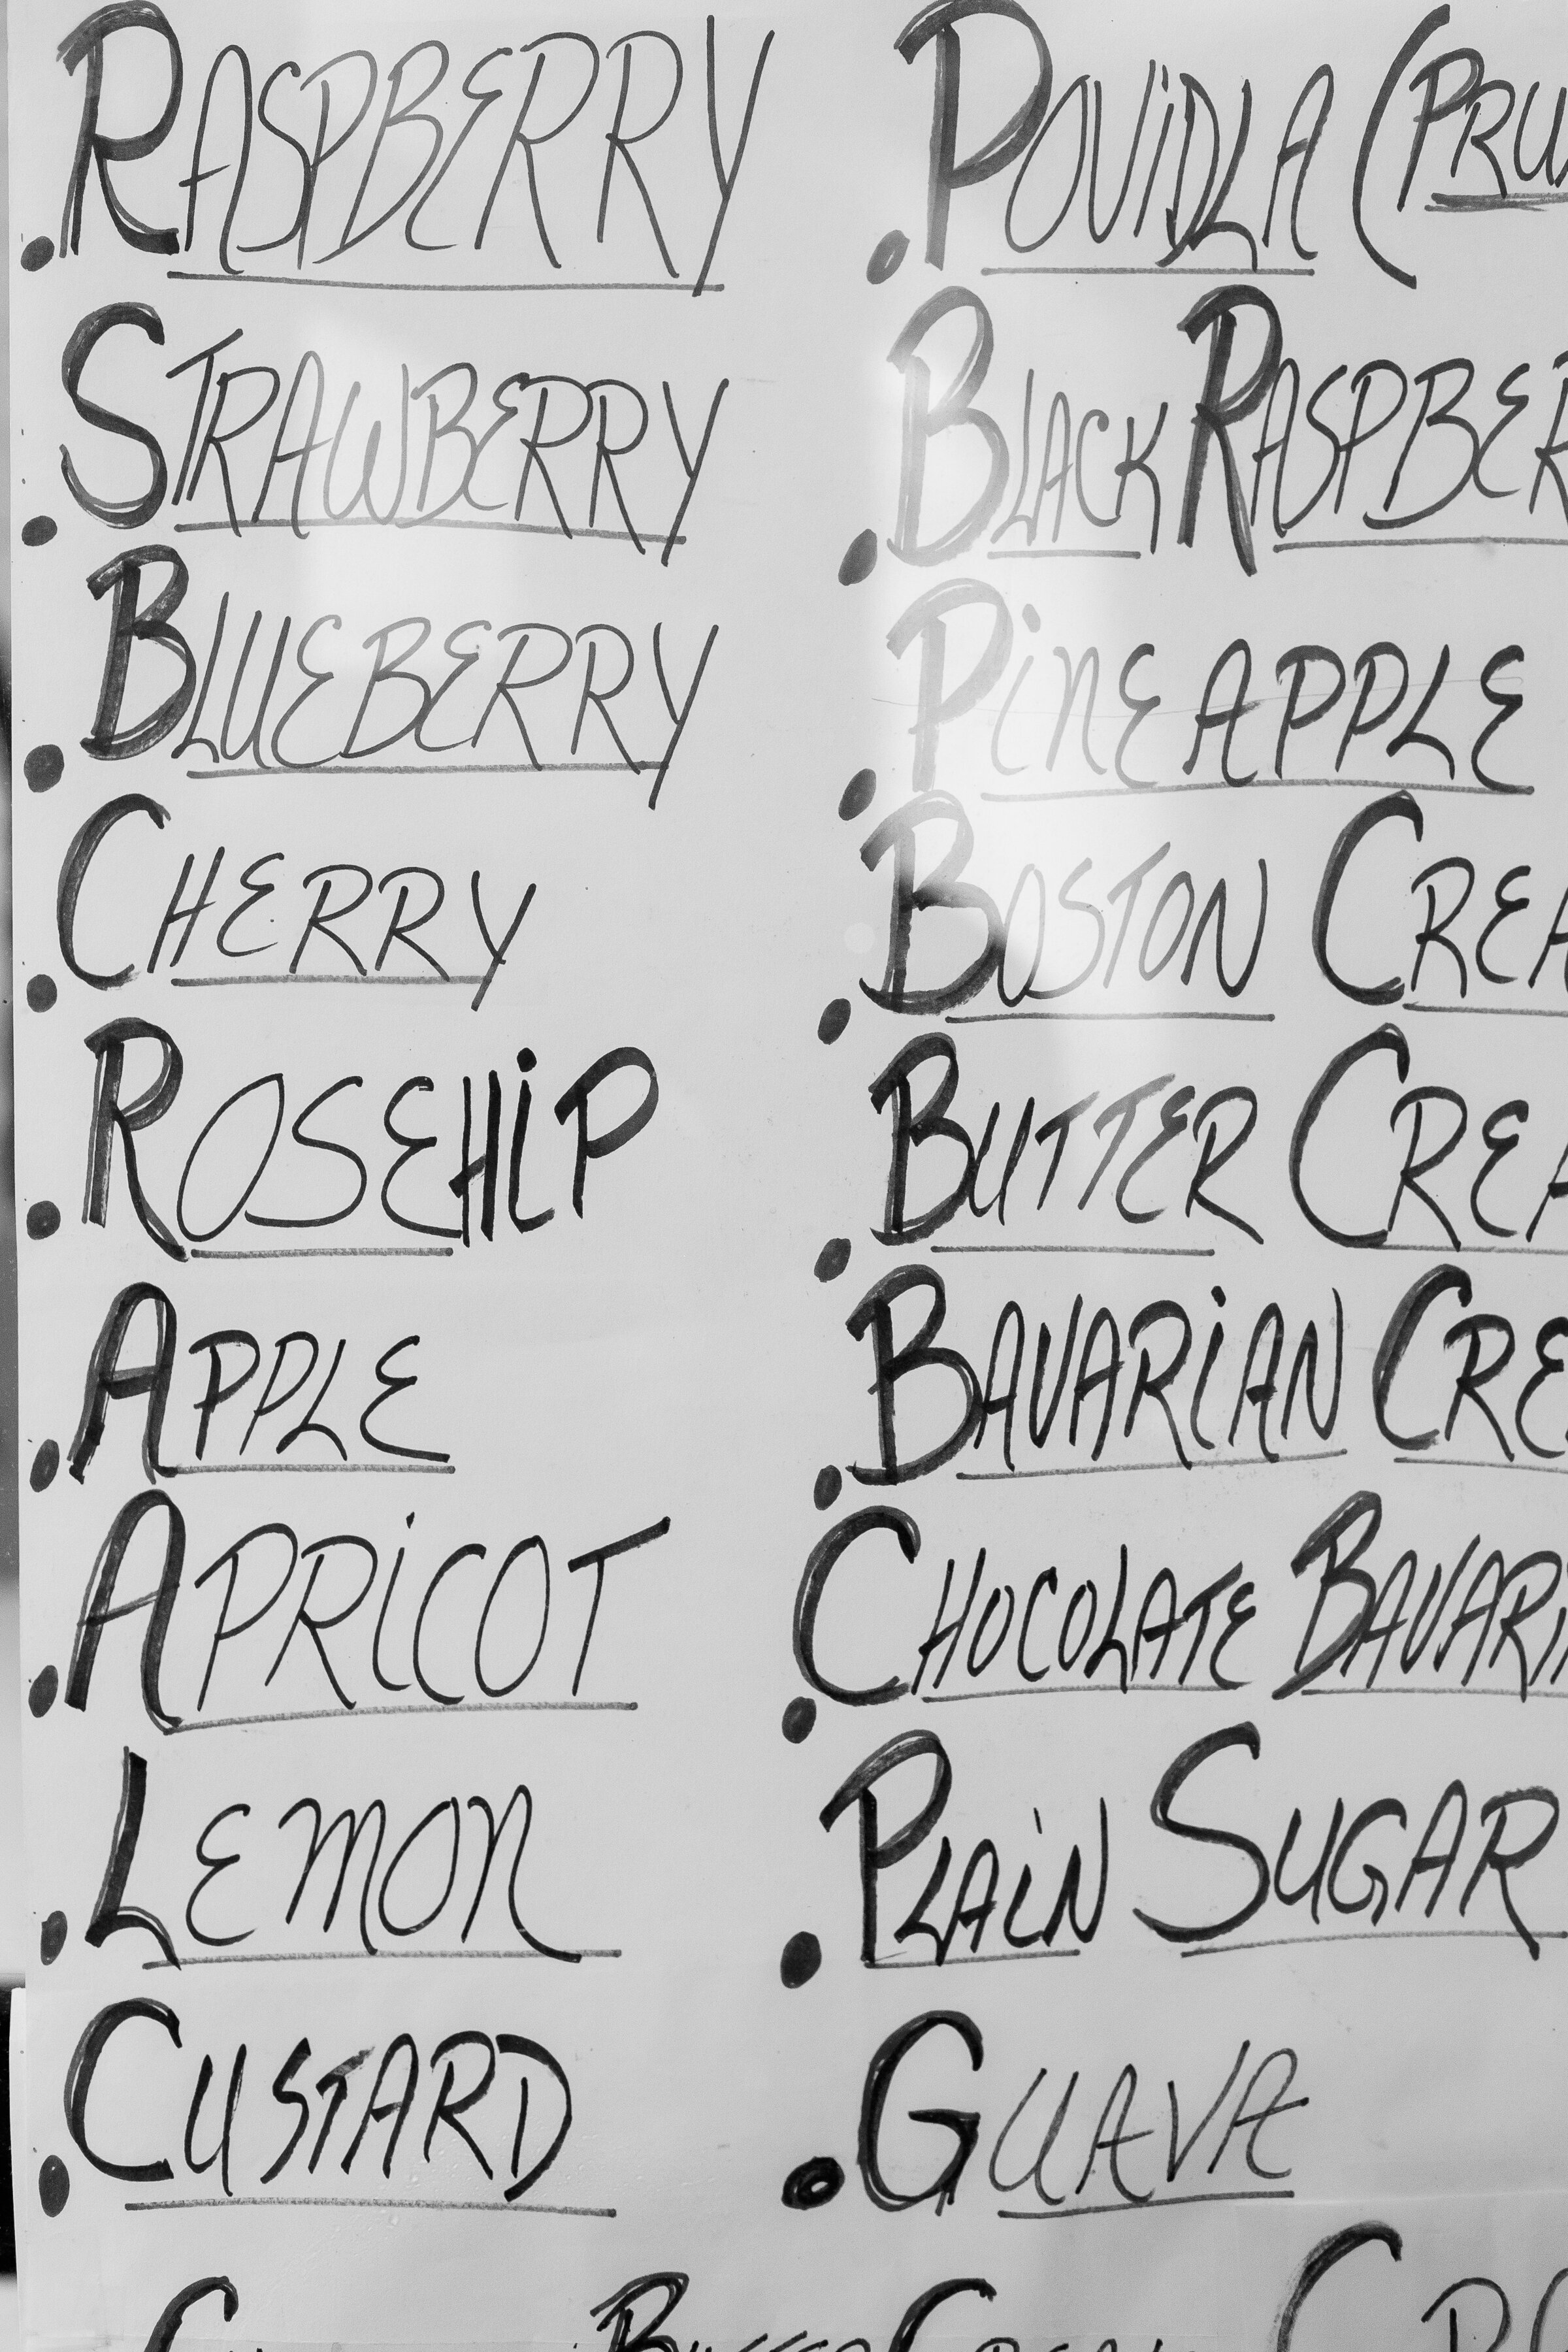 • RASPBERRY
• STRAWBERRY
• BLUEBERRY
• CHERRY
• ROSEHiP
• APPLE
• APRiCOT
• LEMON
• CUSTARD
• POViDLA (PRU
• BLACK RASPBER
• PiNEAPPLE
• BOSTON CREA
• BUTTER CREA
• BAVARiAN CREA
• CHOCOLATE BAVARi
• PLAiN SUGAR
• GUAVA